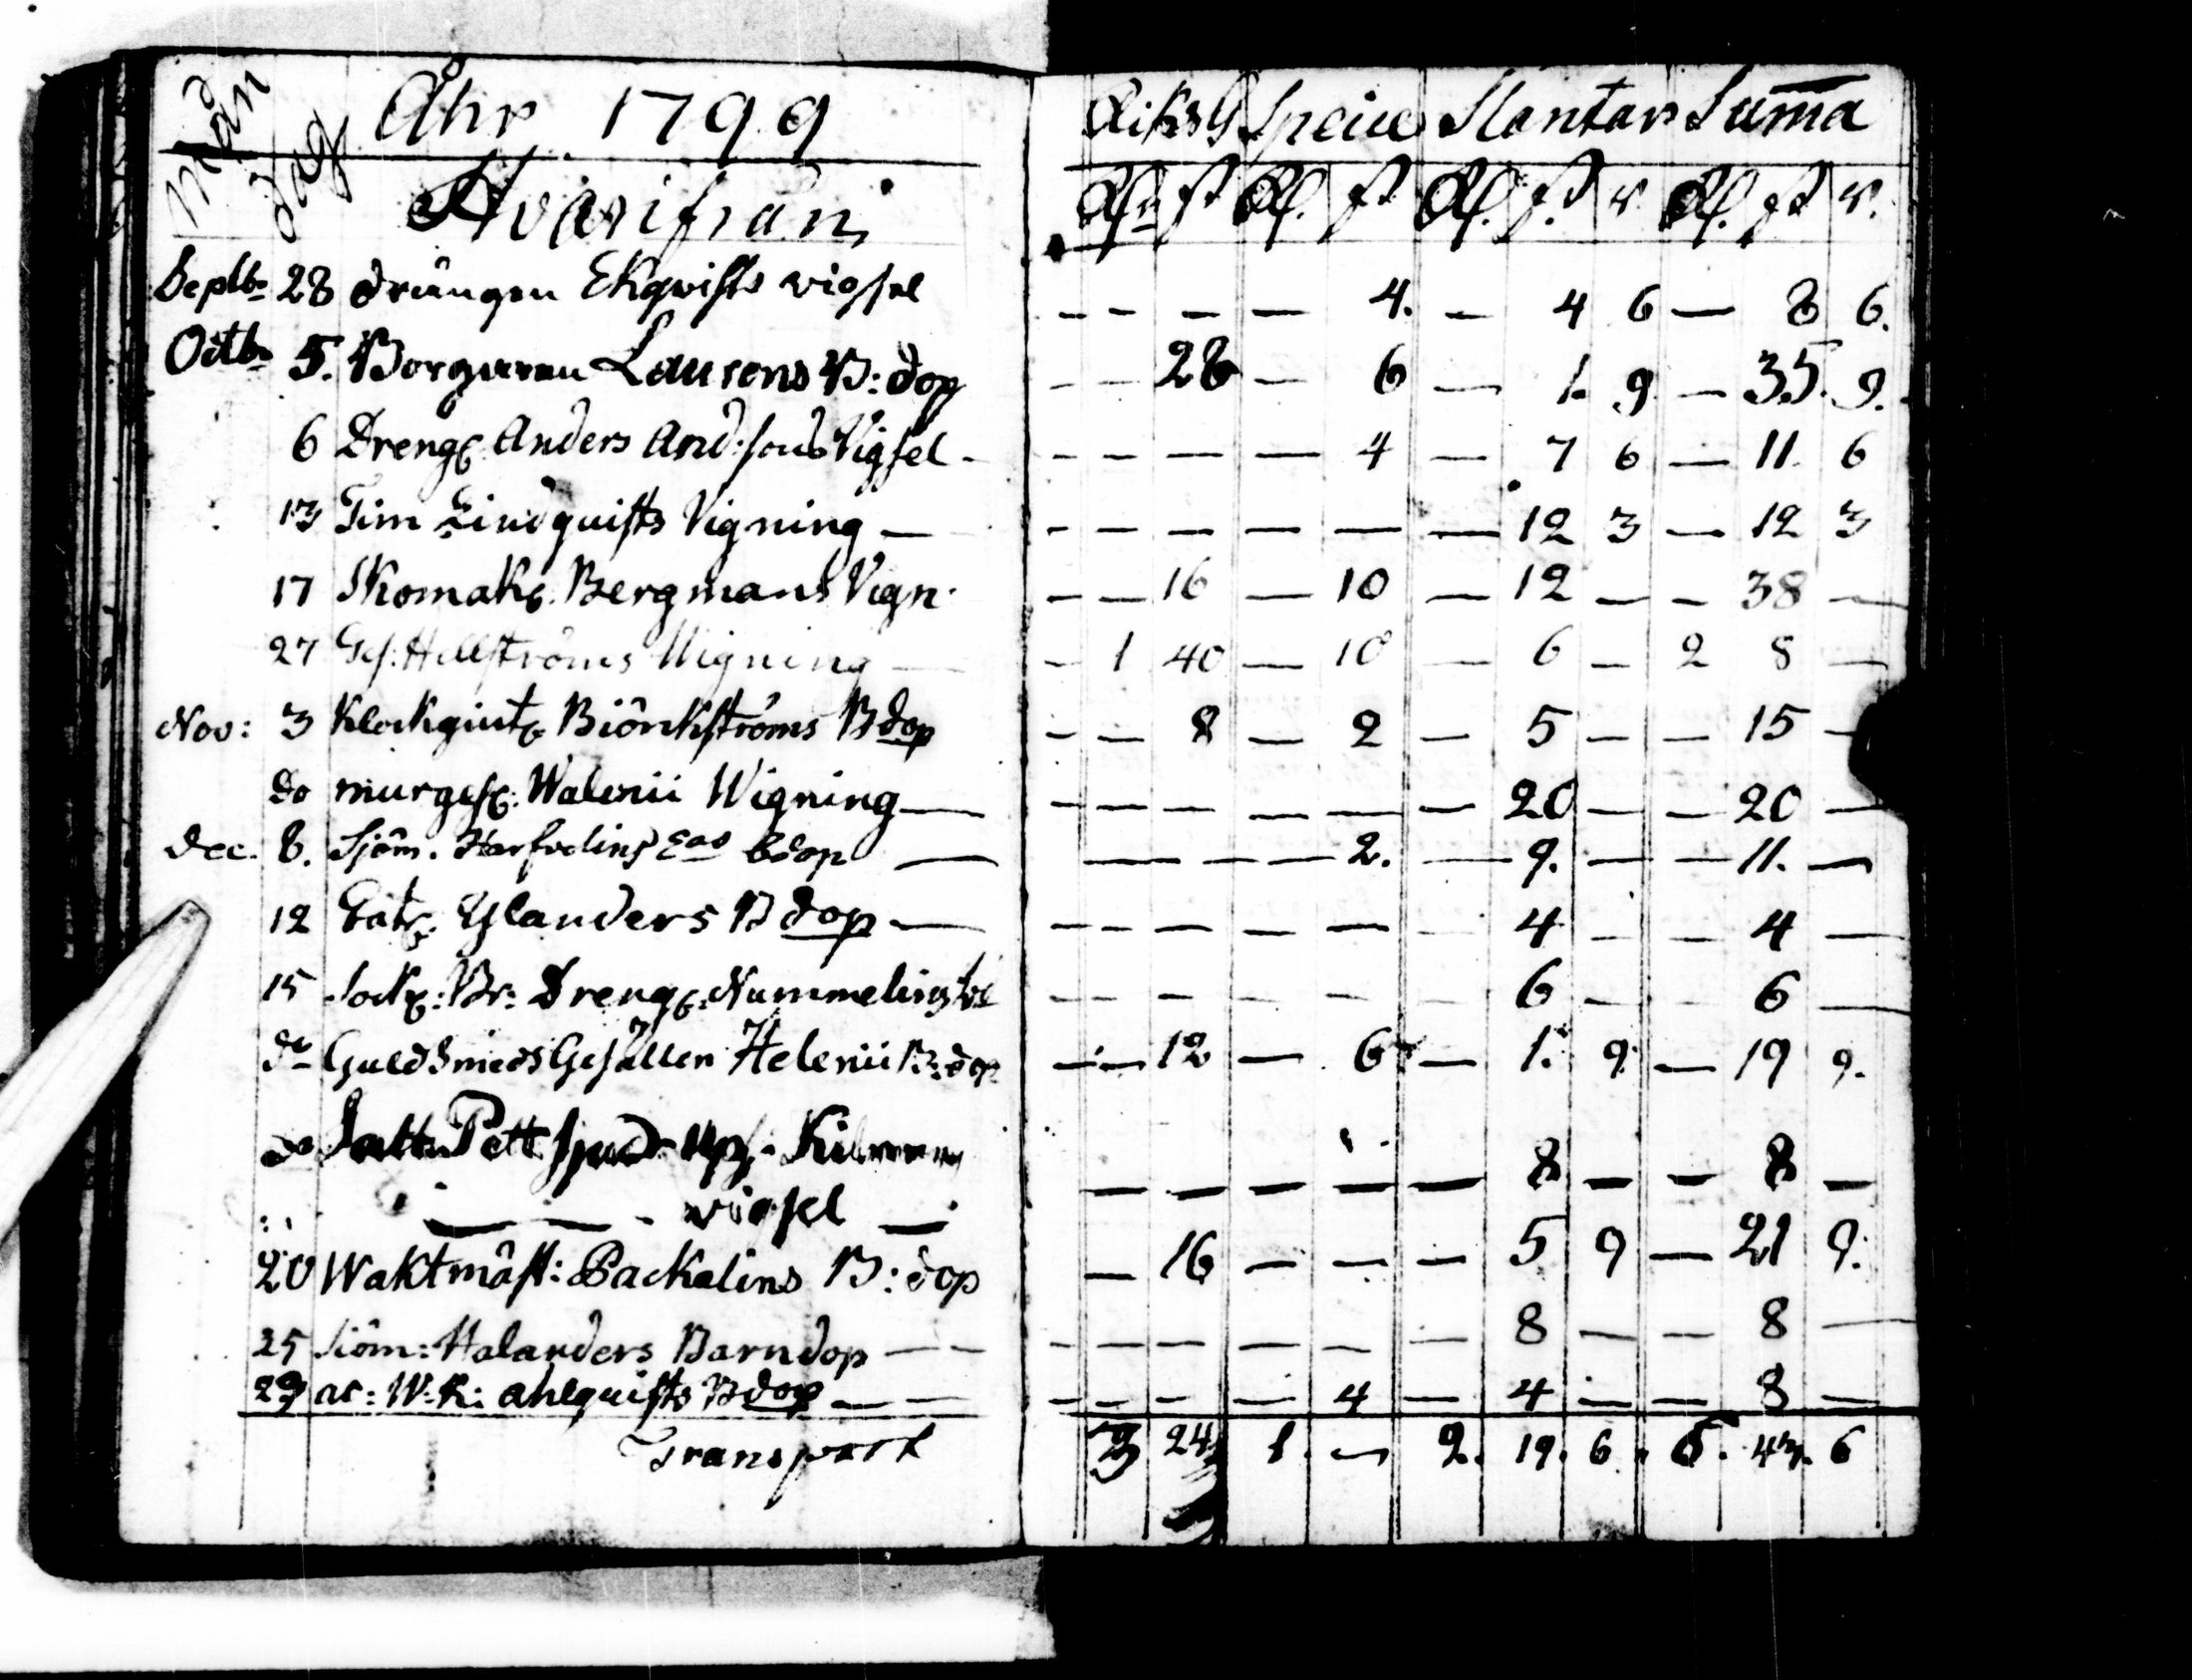 Månd Dag Åhr 1799 RiksG Speice Slantar Suma
Hvarifrån
Septb: 28 drängen Ekqvists vigsel — — — — 4. — 4 6 — 8 6.
Octb: 5. Borgaren Laurens B: dop — — 28 — 6 — 1. 9 — 35. 9.
6 Dreng Anders And:sons Vigsel — — — — 4 — 7 6 — 11. 6
13 Tim Lindquists Vigning — — — — — — 12 3 — 12 3
17 Skomak Bergmans Vign: — — 16 — 10 — 12 — — 38 —
27 Ges: Hellströms Wigning — 1 40 — 10 — 6 — 2 8 —
Nov: 3 Klockgiut Biörkströms Bdop — — 8 — 2 — 5 — — 15 —
do murges: Walenii Wigning — — — — — — — 20 — — 20 —
Dec. 8. Sjöm. bdop — — — — 2. — 9. — — 11. —
12 Ylanders B dop — — — — — — — 4 — — 4 —
15 Br: Dreng: Nummelins — — — — — — 6 — — 6 —
do GuldSmeds Gesällen Helenii B: dop — — 12 — 6 — 1. 9. — 19 9.
do — — — — — 8 — — 8 —
— — - vigsel —
20 Waktmäst: Packalins B: dop — 16 — — — 5 9 — 21 9.
25 Siöm: Halanders Barndop — — — — — — — — 8 — — 8 —
29 W: K: ahlquists Bdop — — — — — — 4 — 4 — — 8 —
Transport 3 24 1. — 2. 19. 6. 6. 43. 6